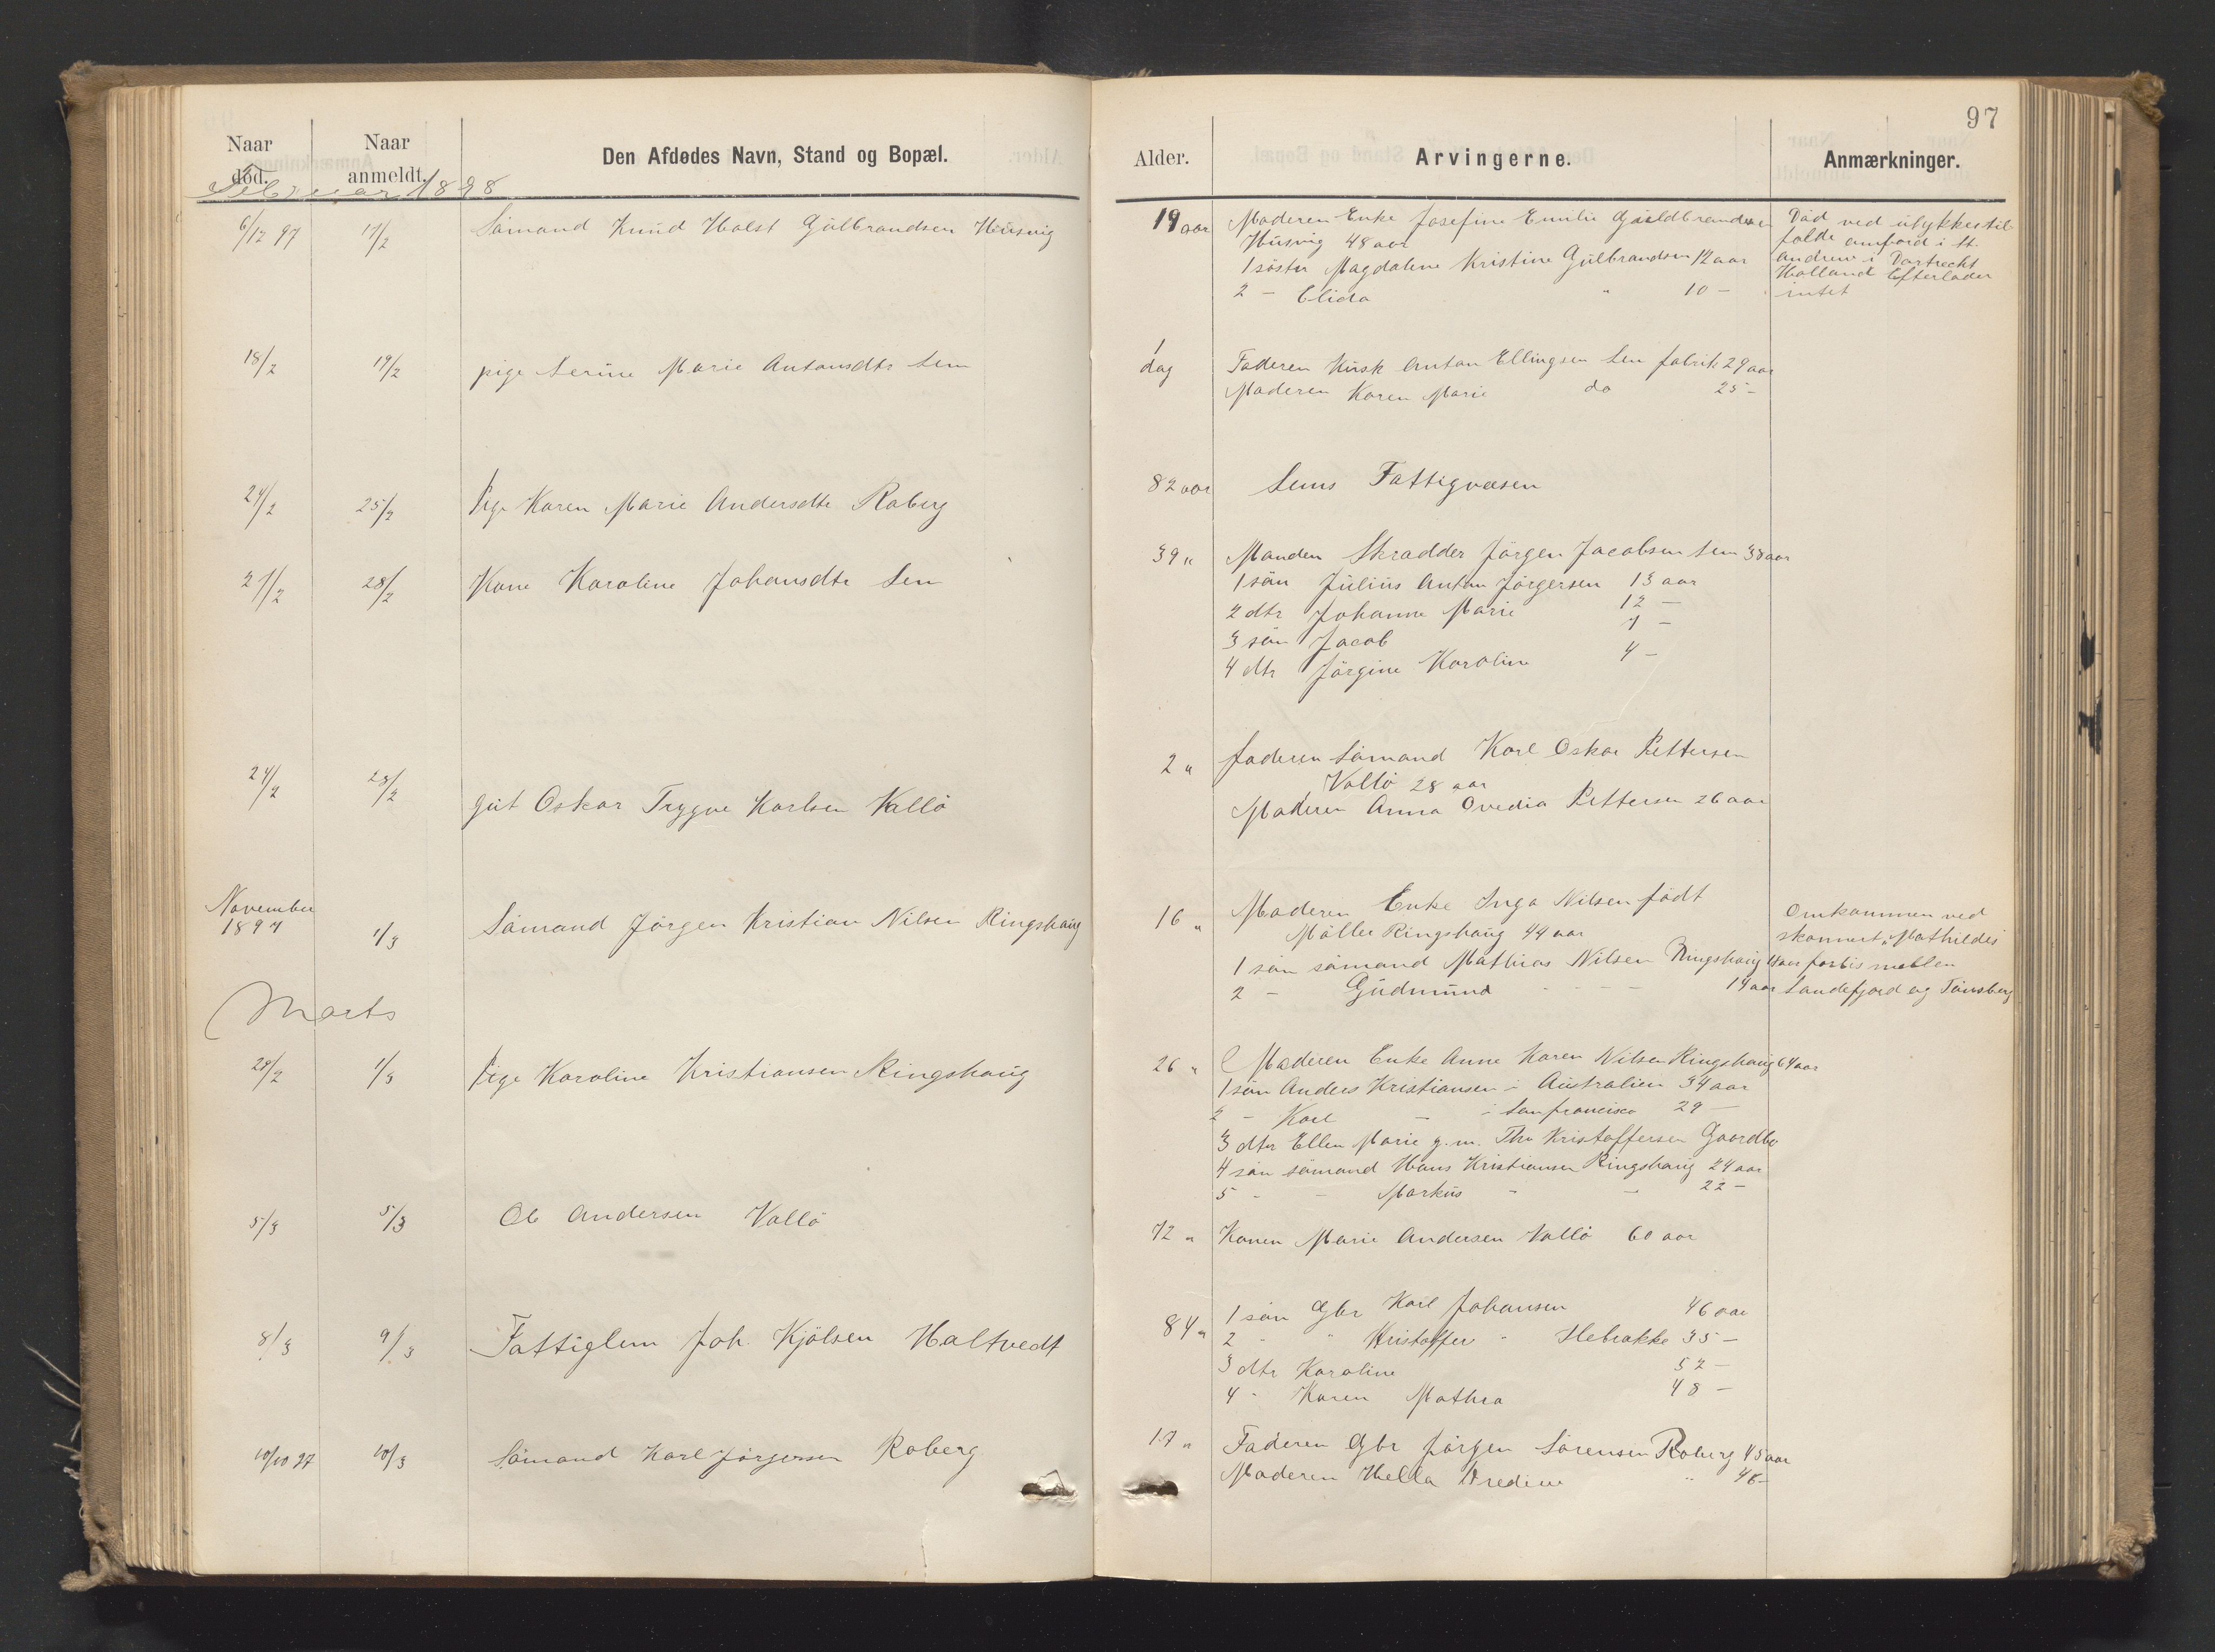 97
Naar død.
Naar anmeldt.
Den Afdødes Navn, Stand og Bopæl.
Alder.
Arvingerne.
Anmærkninger.
Februar 1898
6/12 97 17/2 Sömand Knud Holst Gulbrandsen Husvig
19 aar Moderen Enke Josefine Emilie Guldbrandsen
Husvig 48 aar
1 söster Magdalene Kristine Gulbrandsen 12 aar
2 - Elida " 10 -
Död ved ulykkestil
falde ombord i St.
Andrew i Dortrecht
Holland Efterlader
intet
18/2 19/2 pige Serine Marie Antonsdtr Sem
1 dag Faderen Kusk Anton Ellingsen Sem fabrik 29 aar
Moderen Karen Marie do 25 -
24/2 25/2 Pige Karen Marie Andersdtr Roberg
82 aar Sems Fattigvæsen
21/2 28/2 Kone Karoline Johansdtr Sem
39 " Manden Skrædder Jörgen Jacobsen Sem 38 aar
1 sön Julius Anton Jörgersen 13 aar
2 dtr Johanne Marie 12 -
3 sön Jacob 7 -
4 dtr Jörgine Karoline 4 -
24/2 28/2 gut Oskar Trygve Karlsen Vallö
2 " faderen Sömand Karl Oskar Pettersen
Vallö 28 aar
Moderen Anna Ovedia Pettersen 26 aar
November
1897 1/3 Sömand Jörgen Kristian Nilsen Ringshaug
16 " Moderen Enke Inga Nilsen födt
Möller Ringshaug 44 aar
1 sön sömand Mathias Nilsen Ringshaug aar
2 - Gudmund - - - - 14 aar
Omkommen ved
skonnert "Mathildes
forlis mellem
Sandefjord og Tönsberg
Marts
28/2 1/3 Pige Karoline Kristiansen Ringshaug
26 " Moderen Enke Anne Karen Nilsen Ringshaug 64 aar
1 sön Anders Kristiansen i Australien 34 aar
2 - Karl - i Sanfrancisco 29 -
3 dtr Ellen Marie g.m. Thv Kristoffersen Gaardbo
4 sön sömand Hans Kristiansen Ringshaug 24 aar
5 - - Markus - - 22 -
5/3 5/3 Ole Andersen Vallö
72 " Konen Marie Andersen Vallö 60 aar
8/3 9/3 Fattiglem Joh. Kjölsen Holtvedt
84 " 1 sön Gbr Karl Johansen 46 aar
2 - " Kristoffer " Slebrakke 35 -
3 dtr Karoline 52 -
4 - Karen Mathea 48 -
10/10 97 10/3 Sömand Karl Jörgersen Roberg
17 " Faderen Gbr Jörgen Sörensen Roberg 45 aar
Moderen Hella Andredine " 46 -